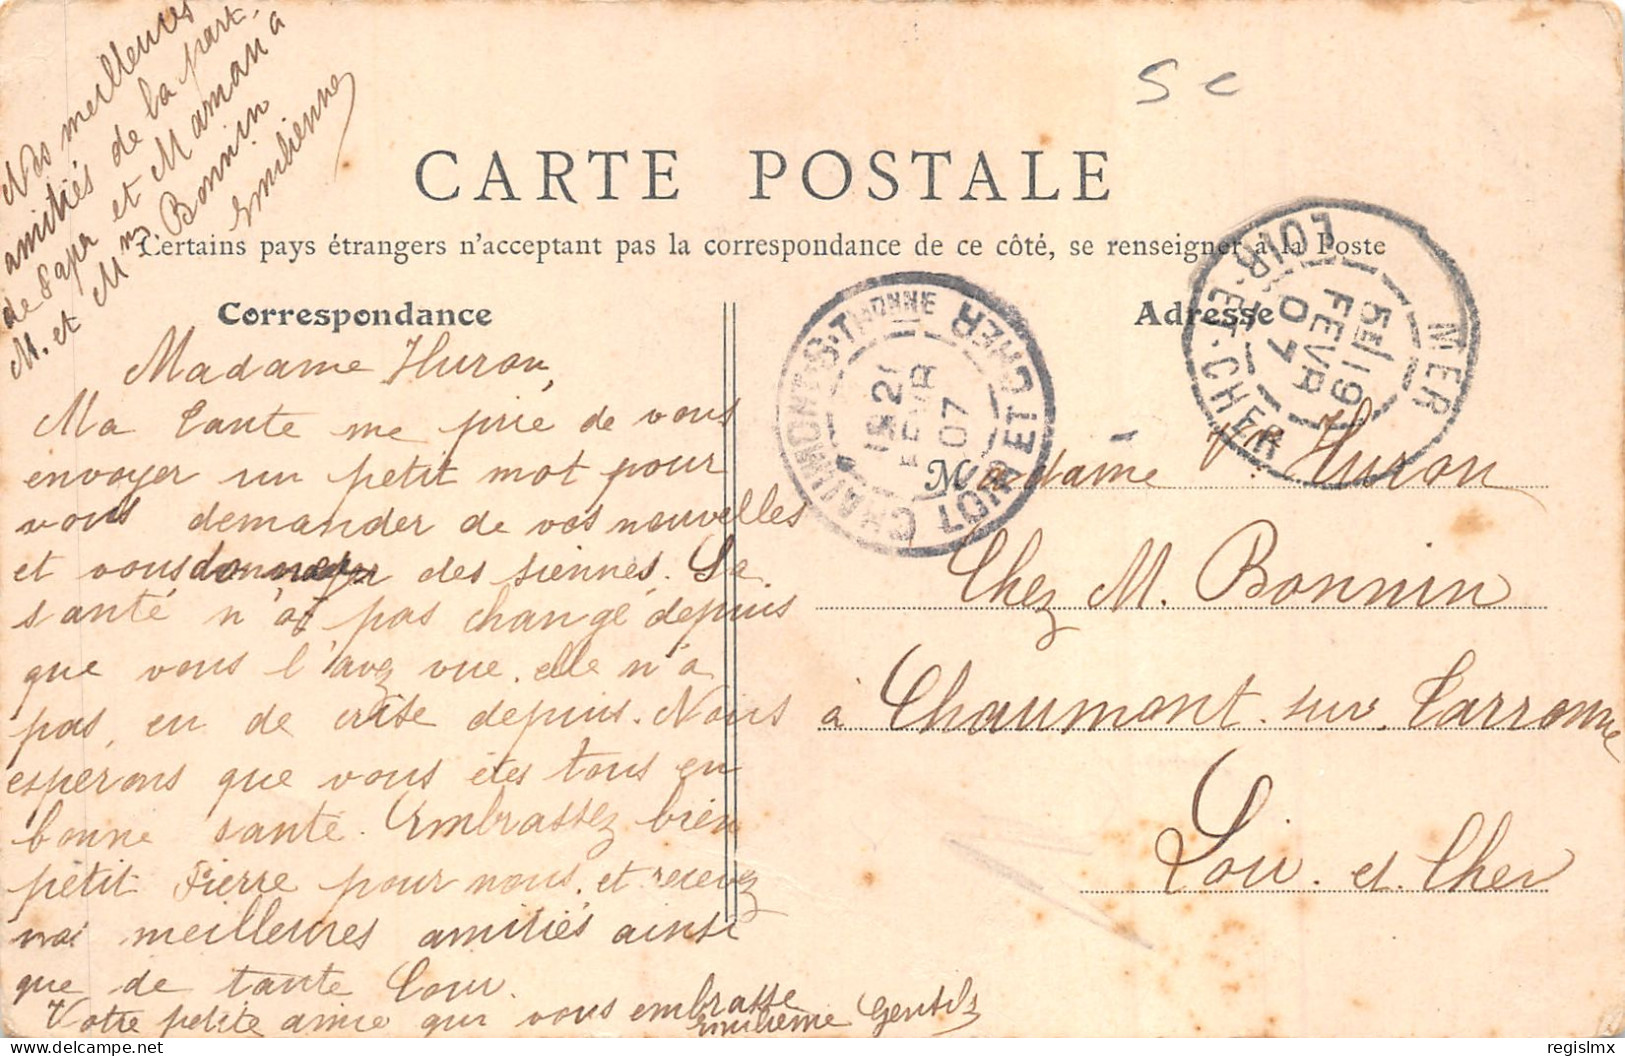 Nos meilleures
amitiés de la part
de Papa et Maman à
M. et Mme Bonnin
Emilienne
5 c
CARTE POSTALE
Certains pays étrangers n'acceptant pas la correspondance de ce côté, se renseigner à la Poste
Correspondance
Adresse
MER
LOIR-ET-CHER
5E 19
FEVR
07
CHAUMONT-S-THARONNE
LOIR ET CHER
FEVR
07
Madame Huron,
Ma tante me prie de vous
envoyer un petit mot pour
vous demander de vos nouvelles
et vous donner des siennes. Sa
santé n'a pas changé depuis
que vous l'avez vue. elle n'a
pas eu de crise depuis. Nous
esperons que vous etes tous en
bonne santé. Embrassez bien
petit Pierre pour nous, et recevez
nos meilleures amitiés ainsi
que de tante
Votre petite amie qui vous embrasse
Emilienne Gentils
Madame Vve Huron
Chez M. Bonnin
à Chaumont sur Tarronne
Loir et Cher
regislmx